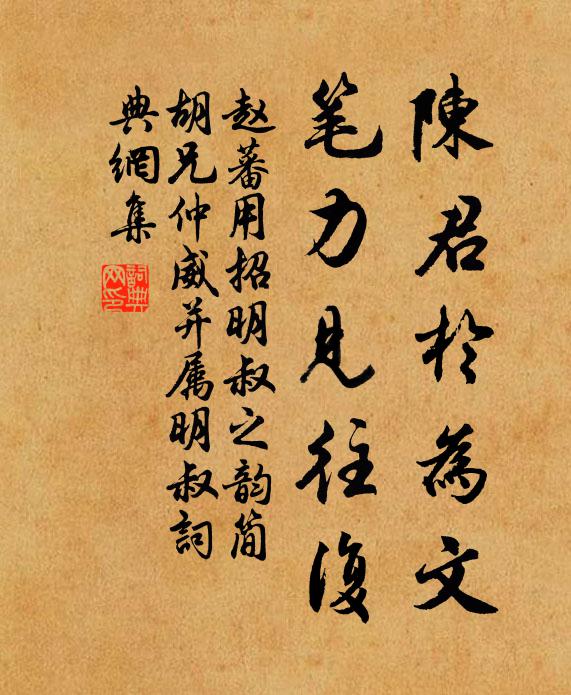 陳君於為文
笔力見往復
赵蕃用招明叔之韵简
胡兄仲威并属明叔詞
典網集
詞典网印